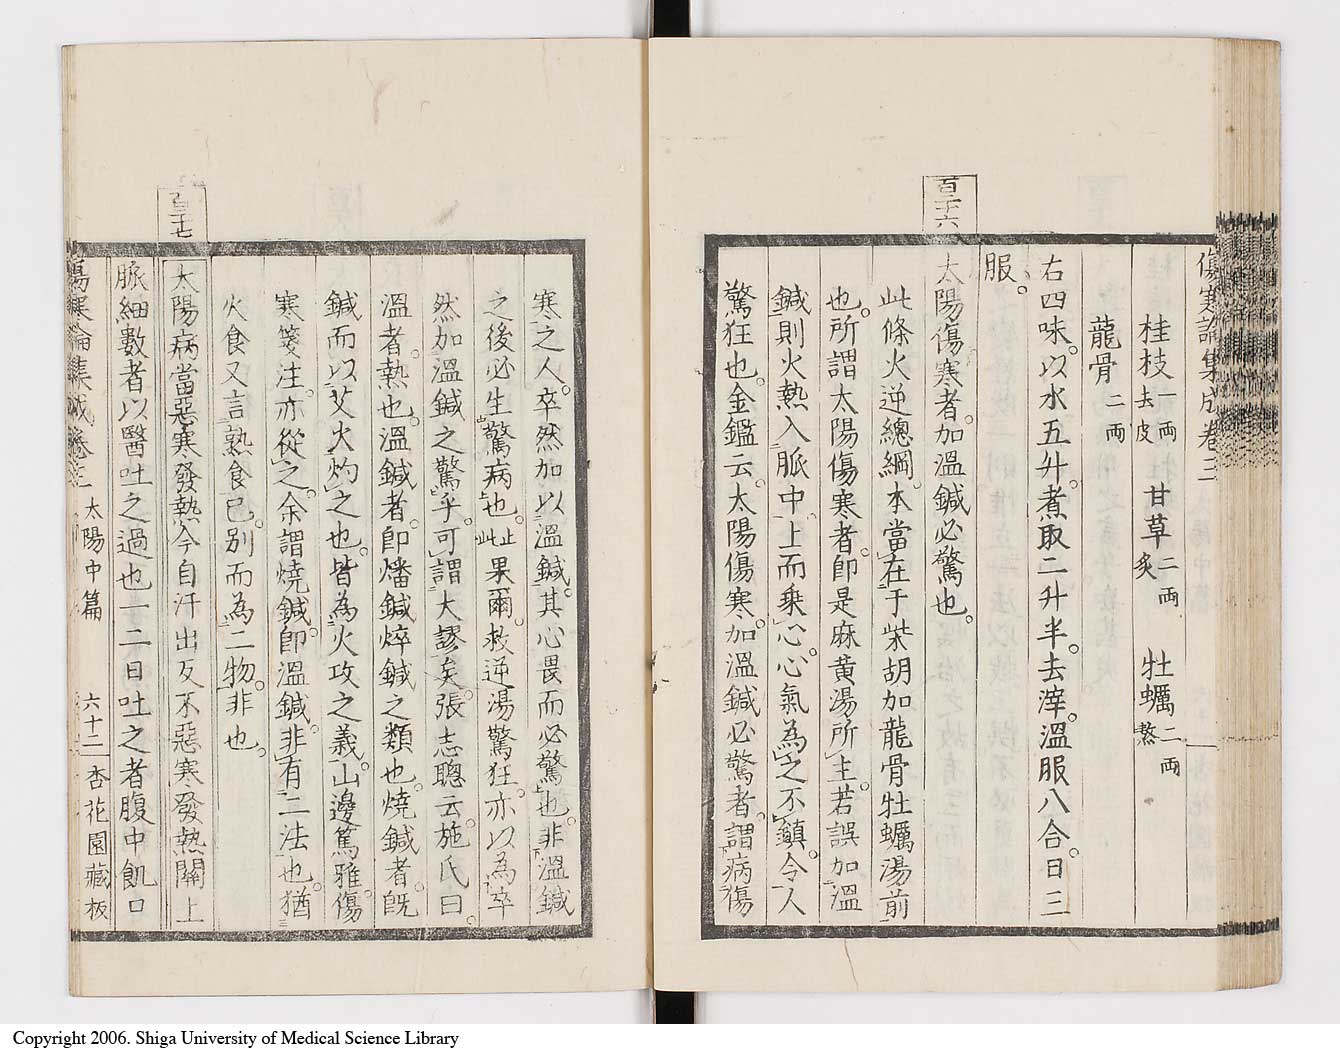 傷寒論集成卷三
桂枝一兩去皮 甘草二兩炙 牡蠣二兩熬
龍骨二兩
右四味。以水五升。煮取二升半。去滓。溫服八合。日三
服。
百二十六
太陽傷寒者。加溫鍼必驚也。
此條火逆總綱。本當在于柴胡加龍骨牡蠣湯前
也。所謂太陽傷寒者。卽是麻黃湯所主。若誤加溫
鍼則火熱入脈中。上而乗心。心氣為之不鎮。令人
驚狂也。金鑑云。太陽傷寒。加溫鍼必驚者。謂病傷
寒之人。卒然加以溫鍼。其心畏而必驚也。非溫鍼
之後必生驚病也。止此果爾。救逆湯驚狂。亦以為卒
然加溫鍼之驚乎。可謂大謬矣。張志聰云。施氏曰。
溫者。熱也。溫鍼者。卽燔鍼焠鍼之類也。燒鍼者。旣
鍼而以艾火灼之也。皆為火攻之義。山邊篤雅。傷
寒箋注。亦從之。余謂燒鍼。卽溫鍼。非有二法也。猶
火食又言熟食已。別而為二物。非也。
百二十七
太陽病當惡寒發熱今自汗出反不惡寒發熱關上
脈細數者以醫吐之過也一二日吐之者腹中飢口
傷寒論集成卷三 太陽中篇 六十二 杏花園藏板
Copyright 2006. Shiga University of Medical Science Library